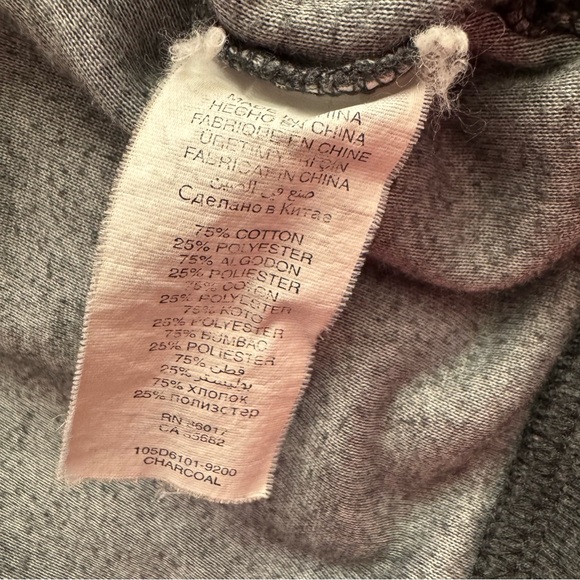 MADE IN CHINA
HECHO EN CHINA
FABRIQUE EN CHINE
FABRICAT IN CHINA
صنع في الصين
Сделано в Китае
75% COTTON
25% POLYESTER
75% ALGODON
25% POLIESTER
75% COTON
25% POLYESTER
75% KOTO
25% POLYESTER
75% BUMBAC
25% POLIESTER
75% قطن
25% بوليستر
75% хлопок
25% полиэстер
RN 36017
CA 35682
105D6101-9200
CHARCOAL